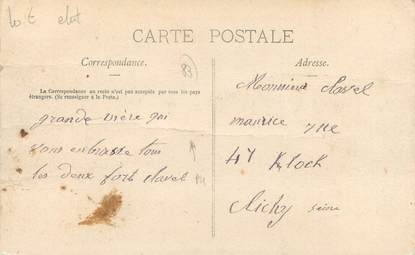 lot etat
CARTE POSTALE
Correspondance.
Adresse.
83
La Correspondance au recto n'est pas acceptée par tous les pays
étrangers. (Se renseigner à la Poste.)
grande mère qui
vous embrasse tous
les deux fort clavel
Monsieur clavel
maurice rue
47 Klock
Clichy seine